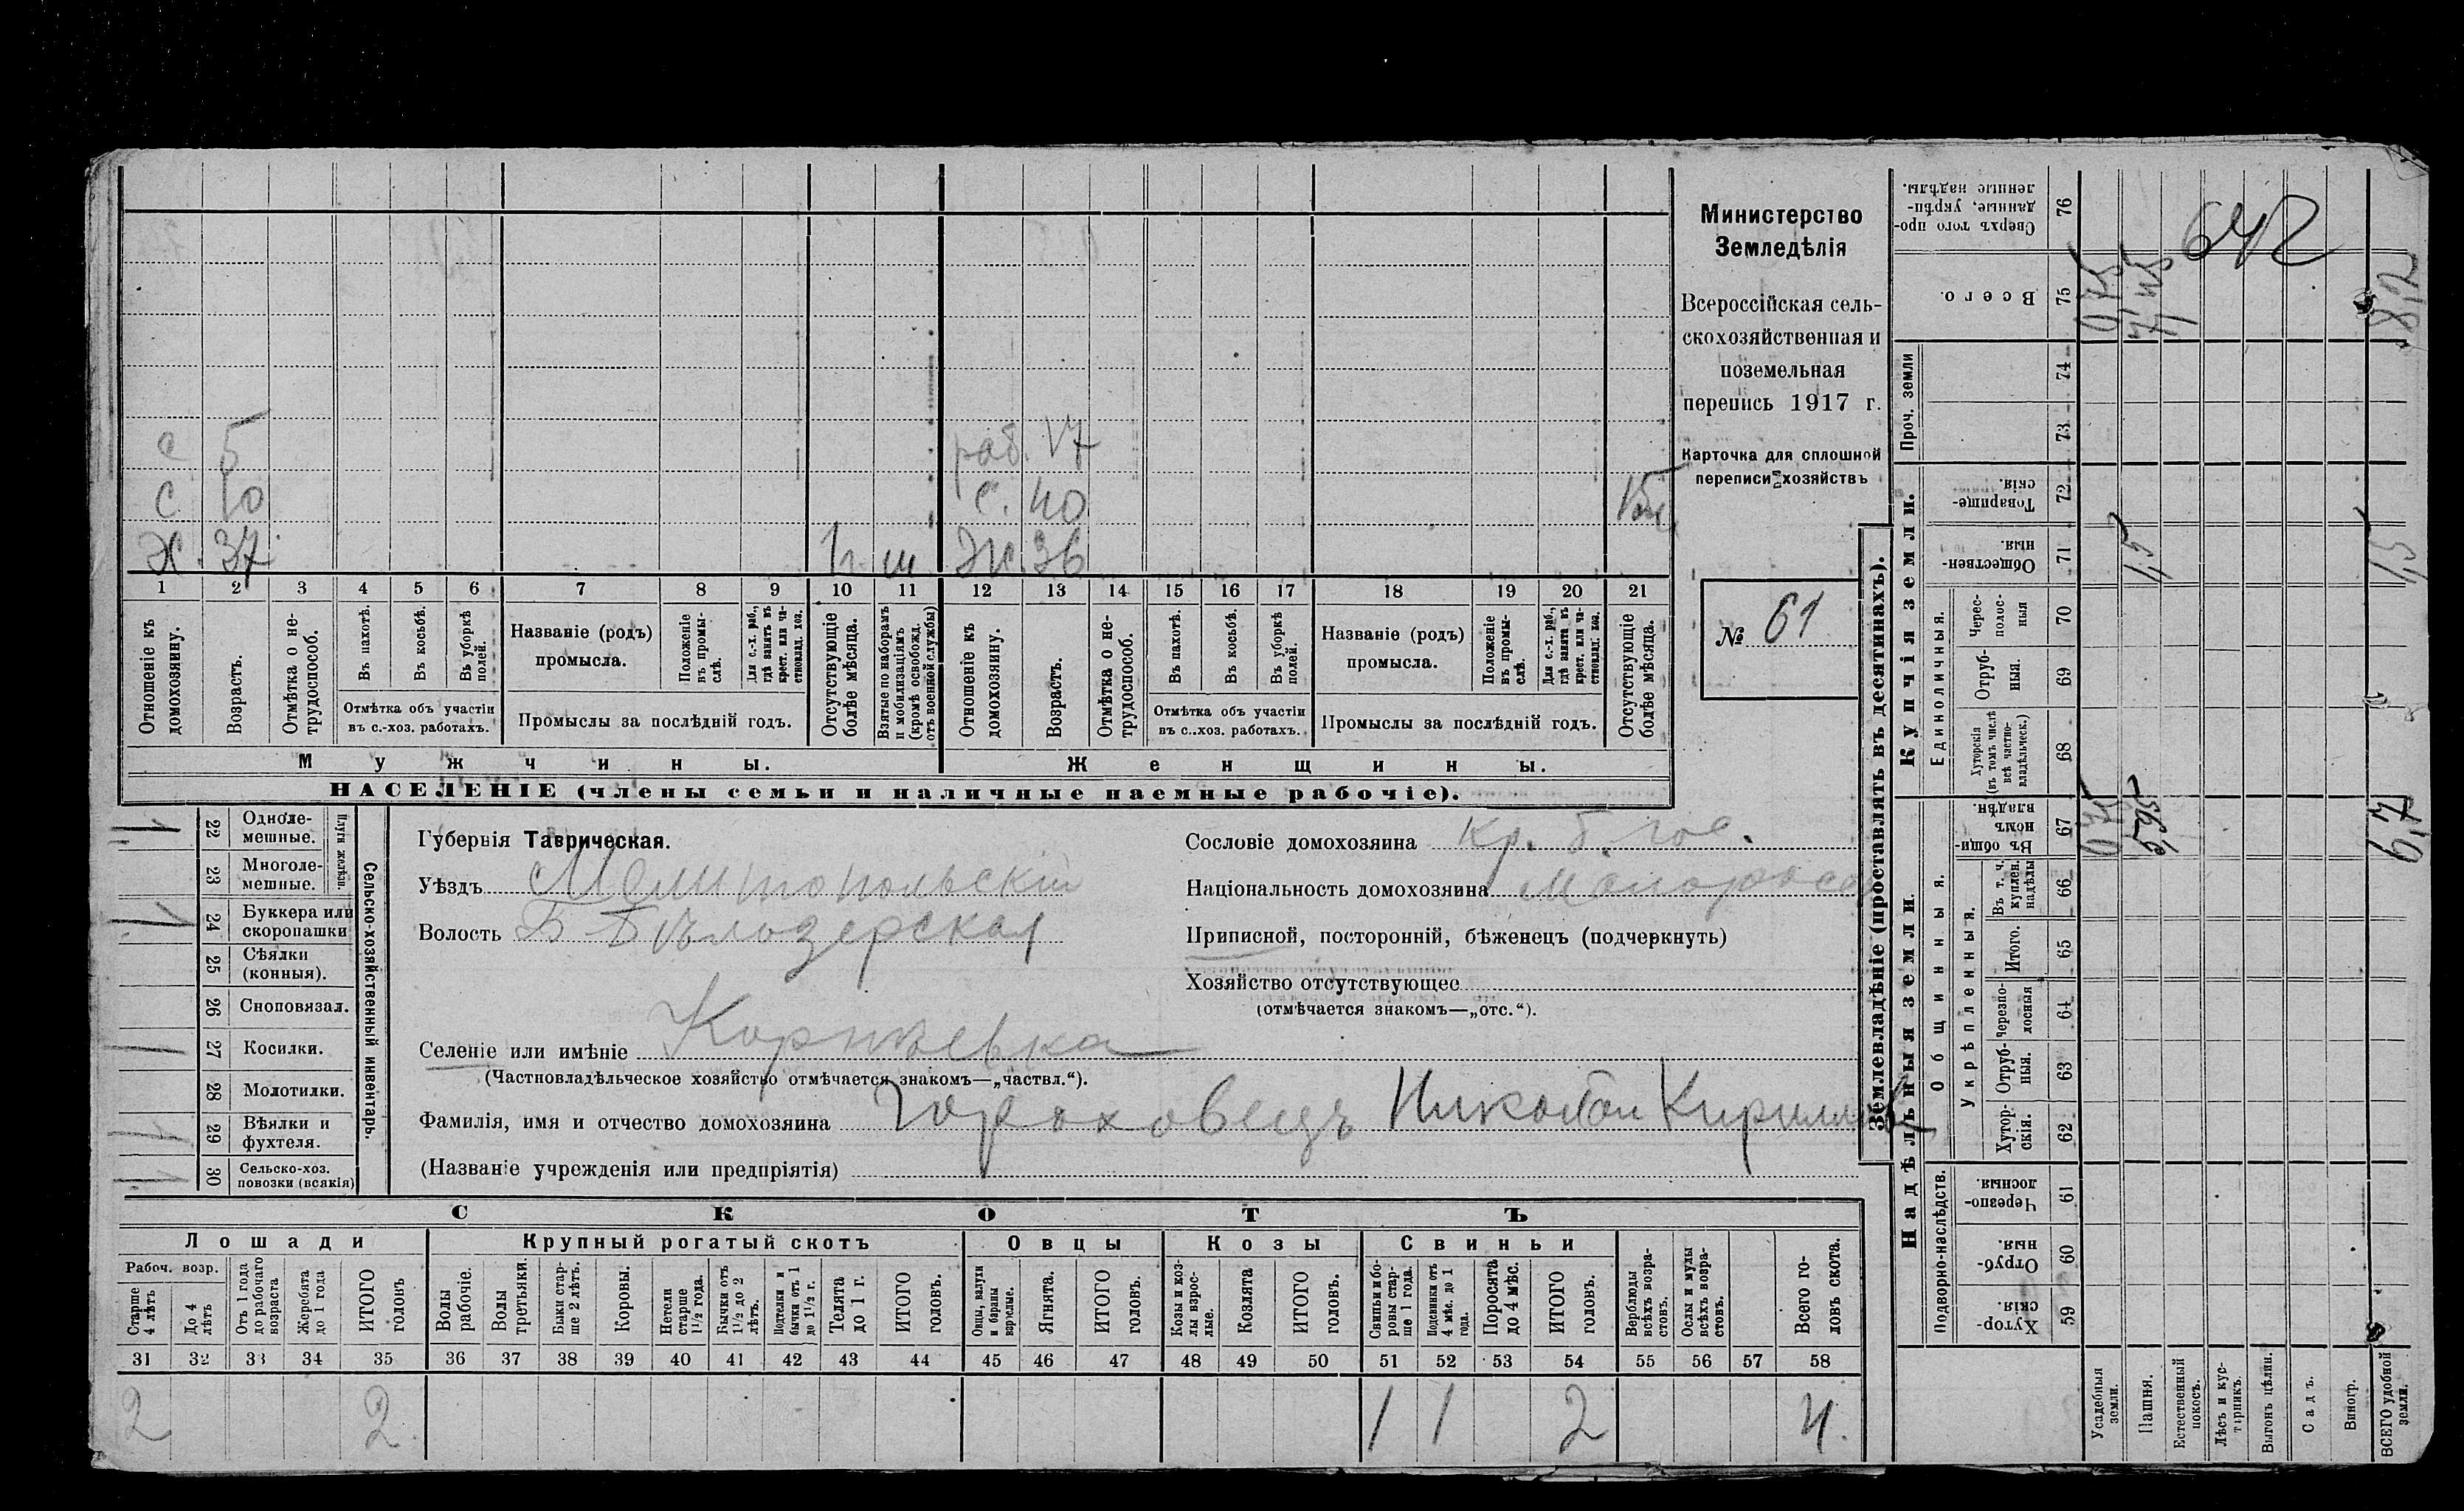 с 5 раб. 17
с 10 с. 10
Х. 37 1 г. ш Ж. 36
1 2 3 4 5 6 7 8 9 10 11 12 13 14 15 16 17 18 19 20 21
Отношеніе къ домохозяину.
Возрастъ.
Отмѣтка о не-трудоспособ.
Въ пахотѣ.
Въ косьбѣ.
Въ уборкѣ полей.
Отмѣтка объ участіи
въ с.-хоз. работахъ.
Названіе (родъ)
промысла.
Положеніе въ промы-слѣ.
Для с.-х. раб., гдѣ занятъ въ крест. или ча-стновлад. хоз.
Промыслы за послѣдній годъ.
Отсутствующіе болѣе мѣсяца.
Взятые по наборамъ и мобилизаціямъ (кромѣ освобожд. отъ военной службы)
Отношеніе къ домохозяину.
Возрастъ.
Отмѣтка о не-трудоспособ.
Въ пахотѣ.
Въ косьбѣ.
Въ уборкѣ полей.
Отмѣтка объ участіи
въ с.-хоз. работахъ.
Названіе (родъ)
промысла.
Положеніе въ промы-слѣ.
Для с.-х. раб., гдѣ занята въ крест. или ча-стновлад. хоз.
Промыслы за послѣдній годъ.
Отсутствующіе болѣе мѣсяца.
Мужчины. Женщины.
НАСЕЛЕНІЕ (члены семьи и наличные наемные рабочіе).
Министерство
Земледѣлія
Всероссійская сель-
скохозяйственная и
поземельная
перепись 1917 г.
Карточка для сплошной
переписи хозяйствъ
№ 61
Сельско-хозяйственный инвентарь.
Плуги желѣзн.
1 22 Одноле-мешные.
23 Многоле-мешные.
1 24 Буккера или скоропашки
25 Сѣялки (конныя).
26 Сноповязал.
1 27 Косилки.
28 Молотилки.
1 29 Вѣялки и фухтеля.
1 30 Сельско-хоз. повозки (всякія)
Губернія Таврическая.
Уѣздъ Мелитопольскій
Волость Б-Бѣлозерская
Селеніе или имѣніе Корнѣевка
(Частновладѣльческое хозяйство отмѣчается знакомъ—„частвл.“).
Фамилія, имя и отчество домохозяина Гороховецъ Николай Кирилл
(Названіе учрежденія или предпріятія)
Сословіе домохозяина кр. б. гос.
Національность домохозяина Малоросс
Приписной, посторонній, бѣженецъ (подчеркнуть)
Хозяйство отсутствующее
(отмѣчается знакомъ—„отс.“).
СКОТЪ
Лошади Крупный рогатый скотъ Овцы Козы Свиньи
Рабоч. возр.
Старше 4 лѣтъ
До 4 лѣтъ
Отъ 1 года до рабочаго возраста
Жеребята до 1 года
ИТОГО головъ
Волы рабочіе.
Волы третьяки.
Быки стар-ше 2 лѣтъ.
Коровы.
Нетели старше 1 1/2 года.
Бычки отъ 1 1/2 до 2 лѣтъ.
Подтелки и бычки отъ 1 до 1 1/2 г.
Телята до 1 г.
ИТОГО головъ.
Овцы, валухи и бараны взрослые.
Ягнята.
ИТОГО головъ.
Козы и коз-лы взрос-лые.
Козлята
ИТОГО головъ.
Свиньи и бо-ровы стар-ше 1 года.
Подсвинки отъ 4 мѣс. до 1 года.
Поросята до 4 мѣс.
ИТОГО головъ.
Верблюды всѣхъ возра-стовъ.
Ослы и мулы всѣхъ возра-стовъ.
Всего го-ловъ скота.
31 32 33 34 35 36 37 38 39 40 41 42 43 44 45 46 47 48 49 50 51 52 53 54 55 56 57 58
2 2 1 1 2 4.
Землевладѣніе (проставлять въ десятинахъ).
Надѣльныя земли. Купчія земли. Проч. земли
Подворно-наслѣдств. Общинныя. Единоличныя.
Укрѣпленныя.
Хутор-скія. 59
Отруб-ныя. 60
Черезпо-лосныя. 61
Хутор-скія. 62
Отруб-ныя. 63
Черезпо-лосныя 64
Итого. 65
Въ т. ч. куплен. надѣлы 66
Въ общин-номъ владѣн. 67
Хуторскія (въ томъ числѣ всѣ частно-владѣльческ.) 68
Отруб-ныя. 69
Черес-полос-ныя 70
Обществен-ныя. 71
Товарище-скія. 72
73
74
Всего. 75
Сверхъ того про-данные, укрѣп-ленные надѣлы. 76
Усадебныя земли.
Пашня.
Естественный покосъ.
Лѣсъ и кус-тарникъ.
Выгонъ цѣлин.
Садъ.
Виногр.
ВСЕГО удобной земли.
642